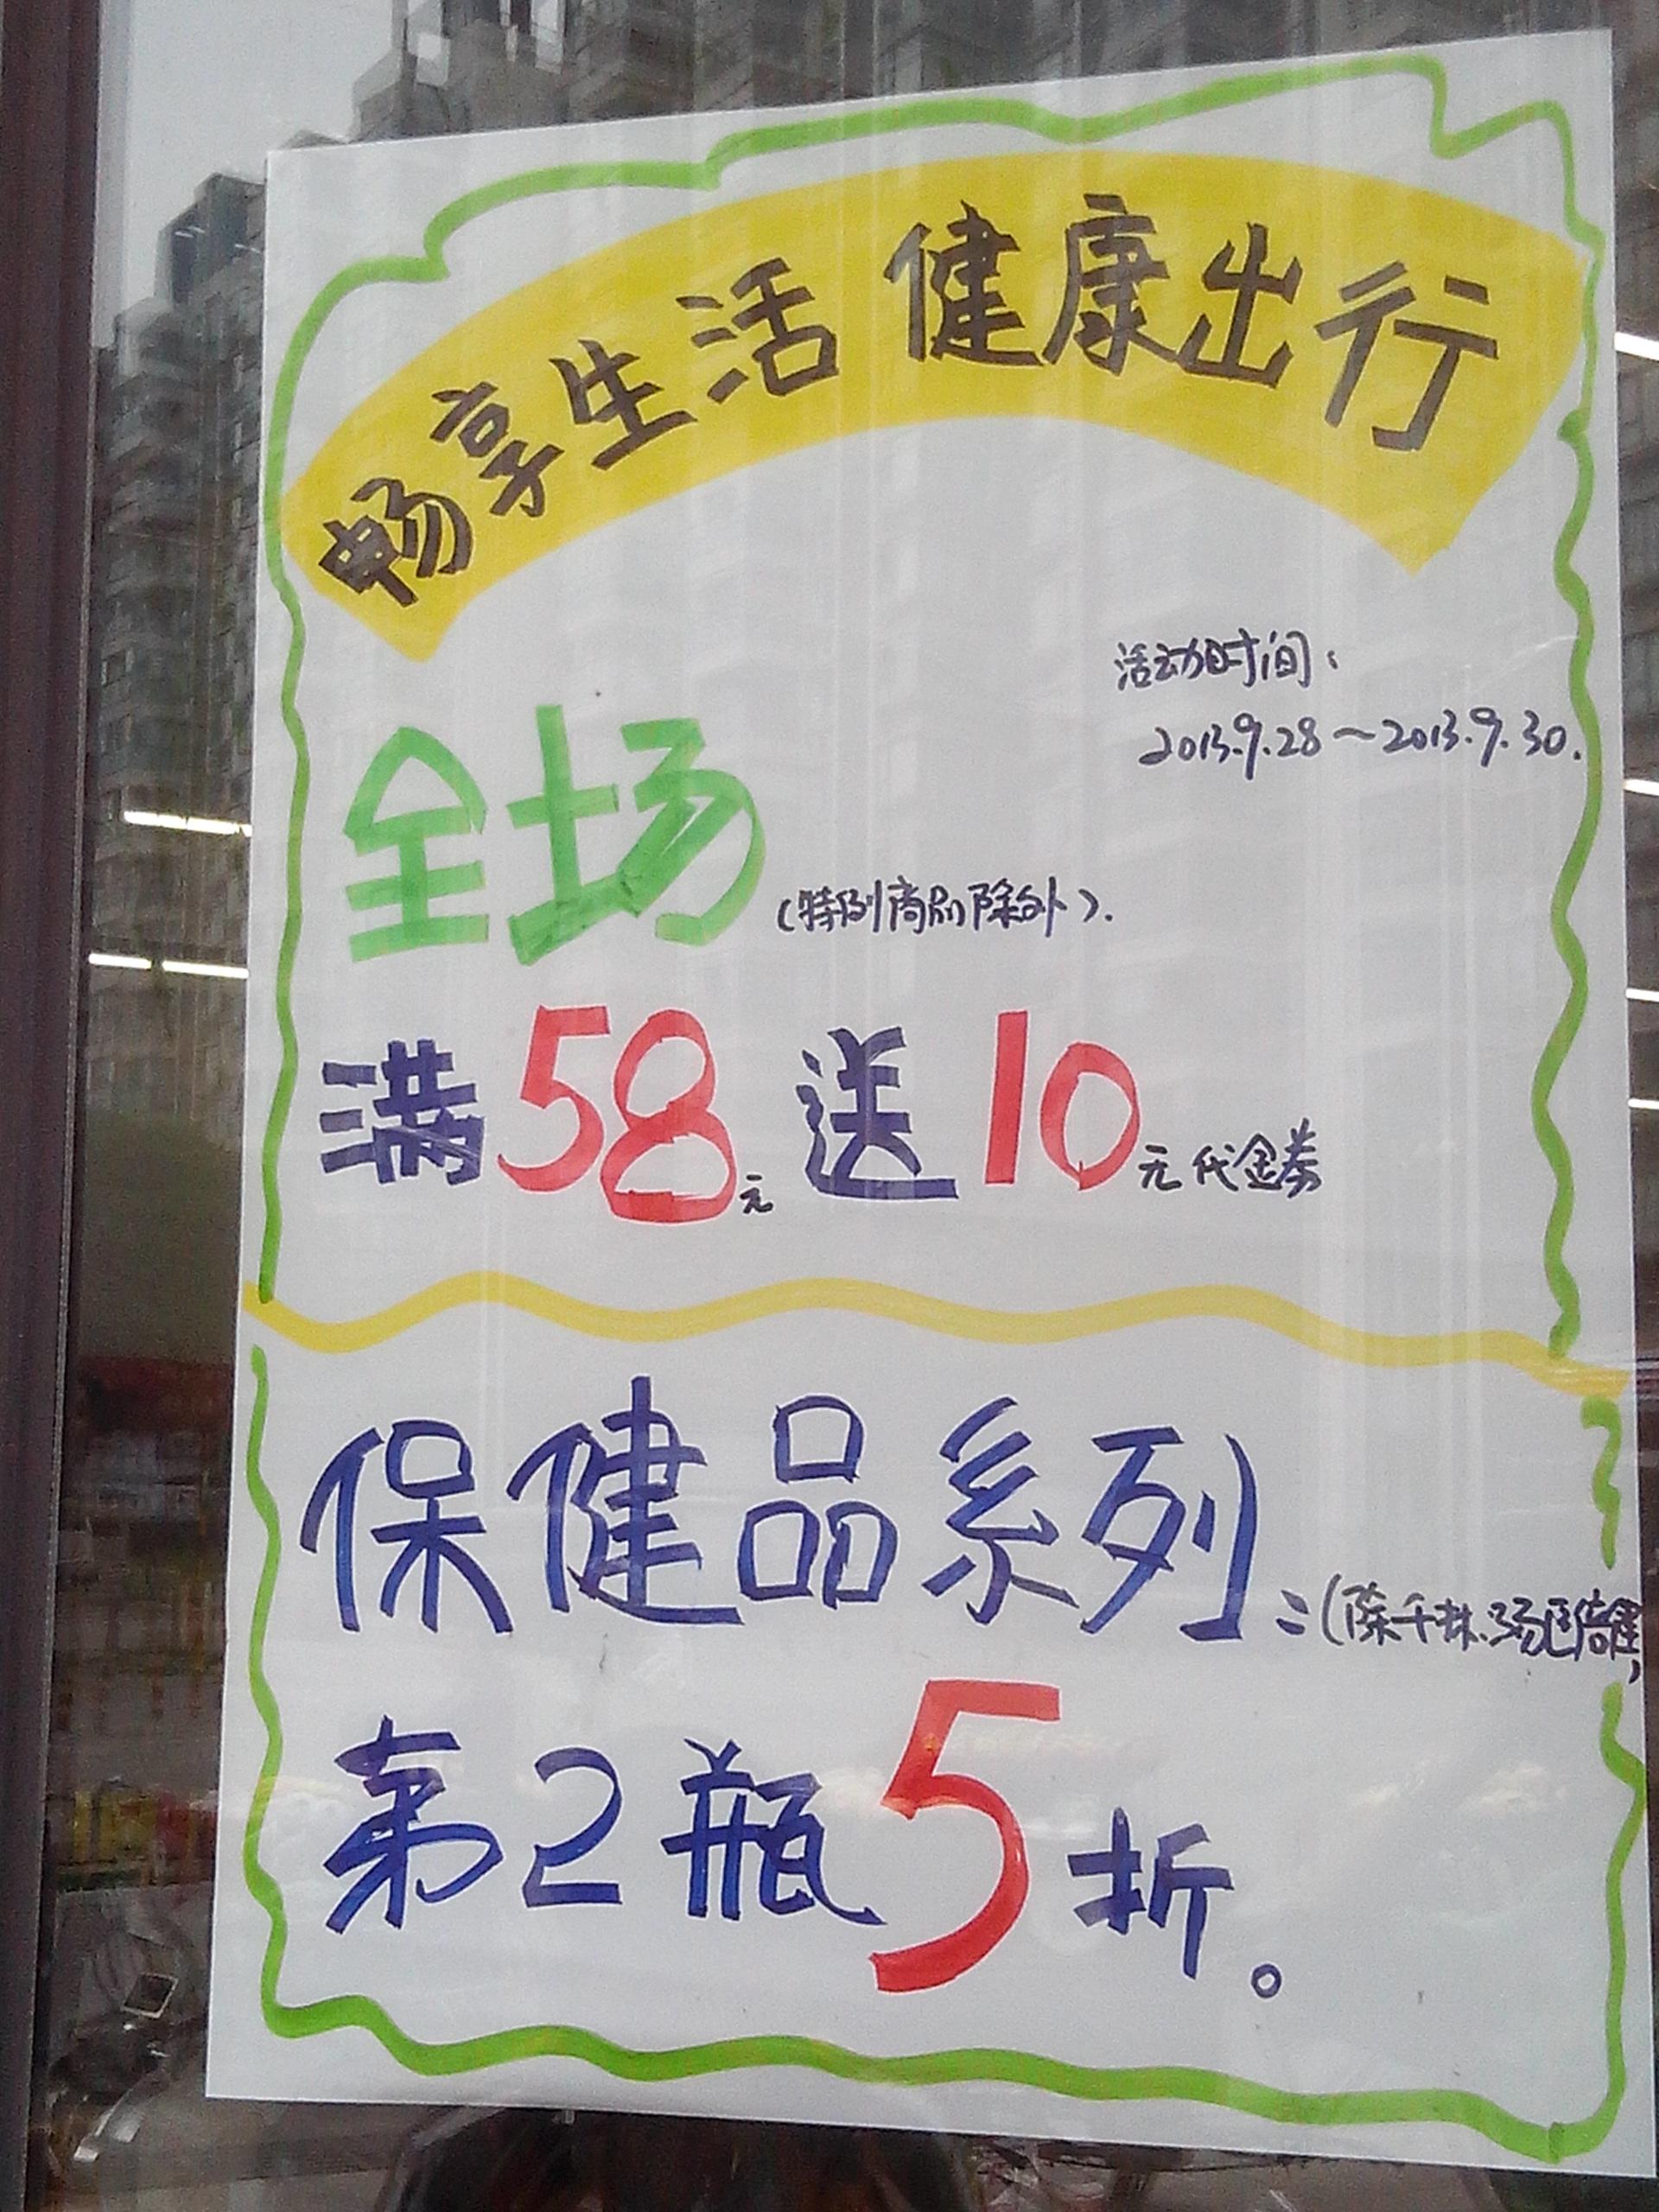 畅享生活 健康出行
活动时间:
2013.9.28~2013.9.30.
全场(特例商品除外).
满58元送10元代金券
保健品系列:(除千林.汤臣倍健)
第2瓶5折。